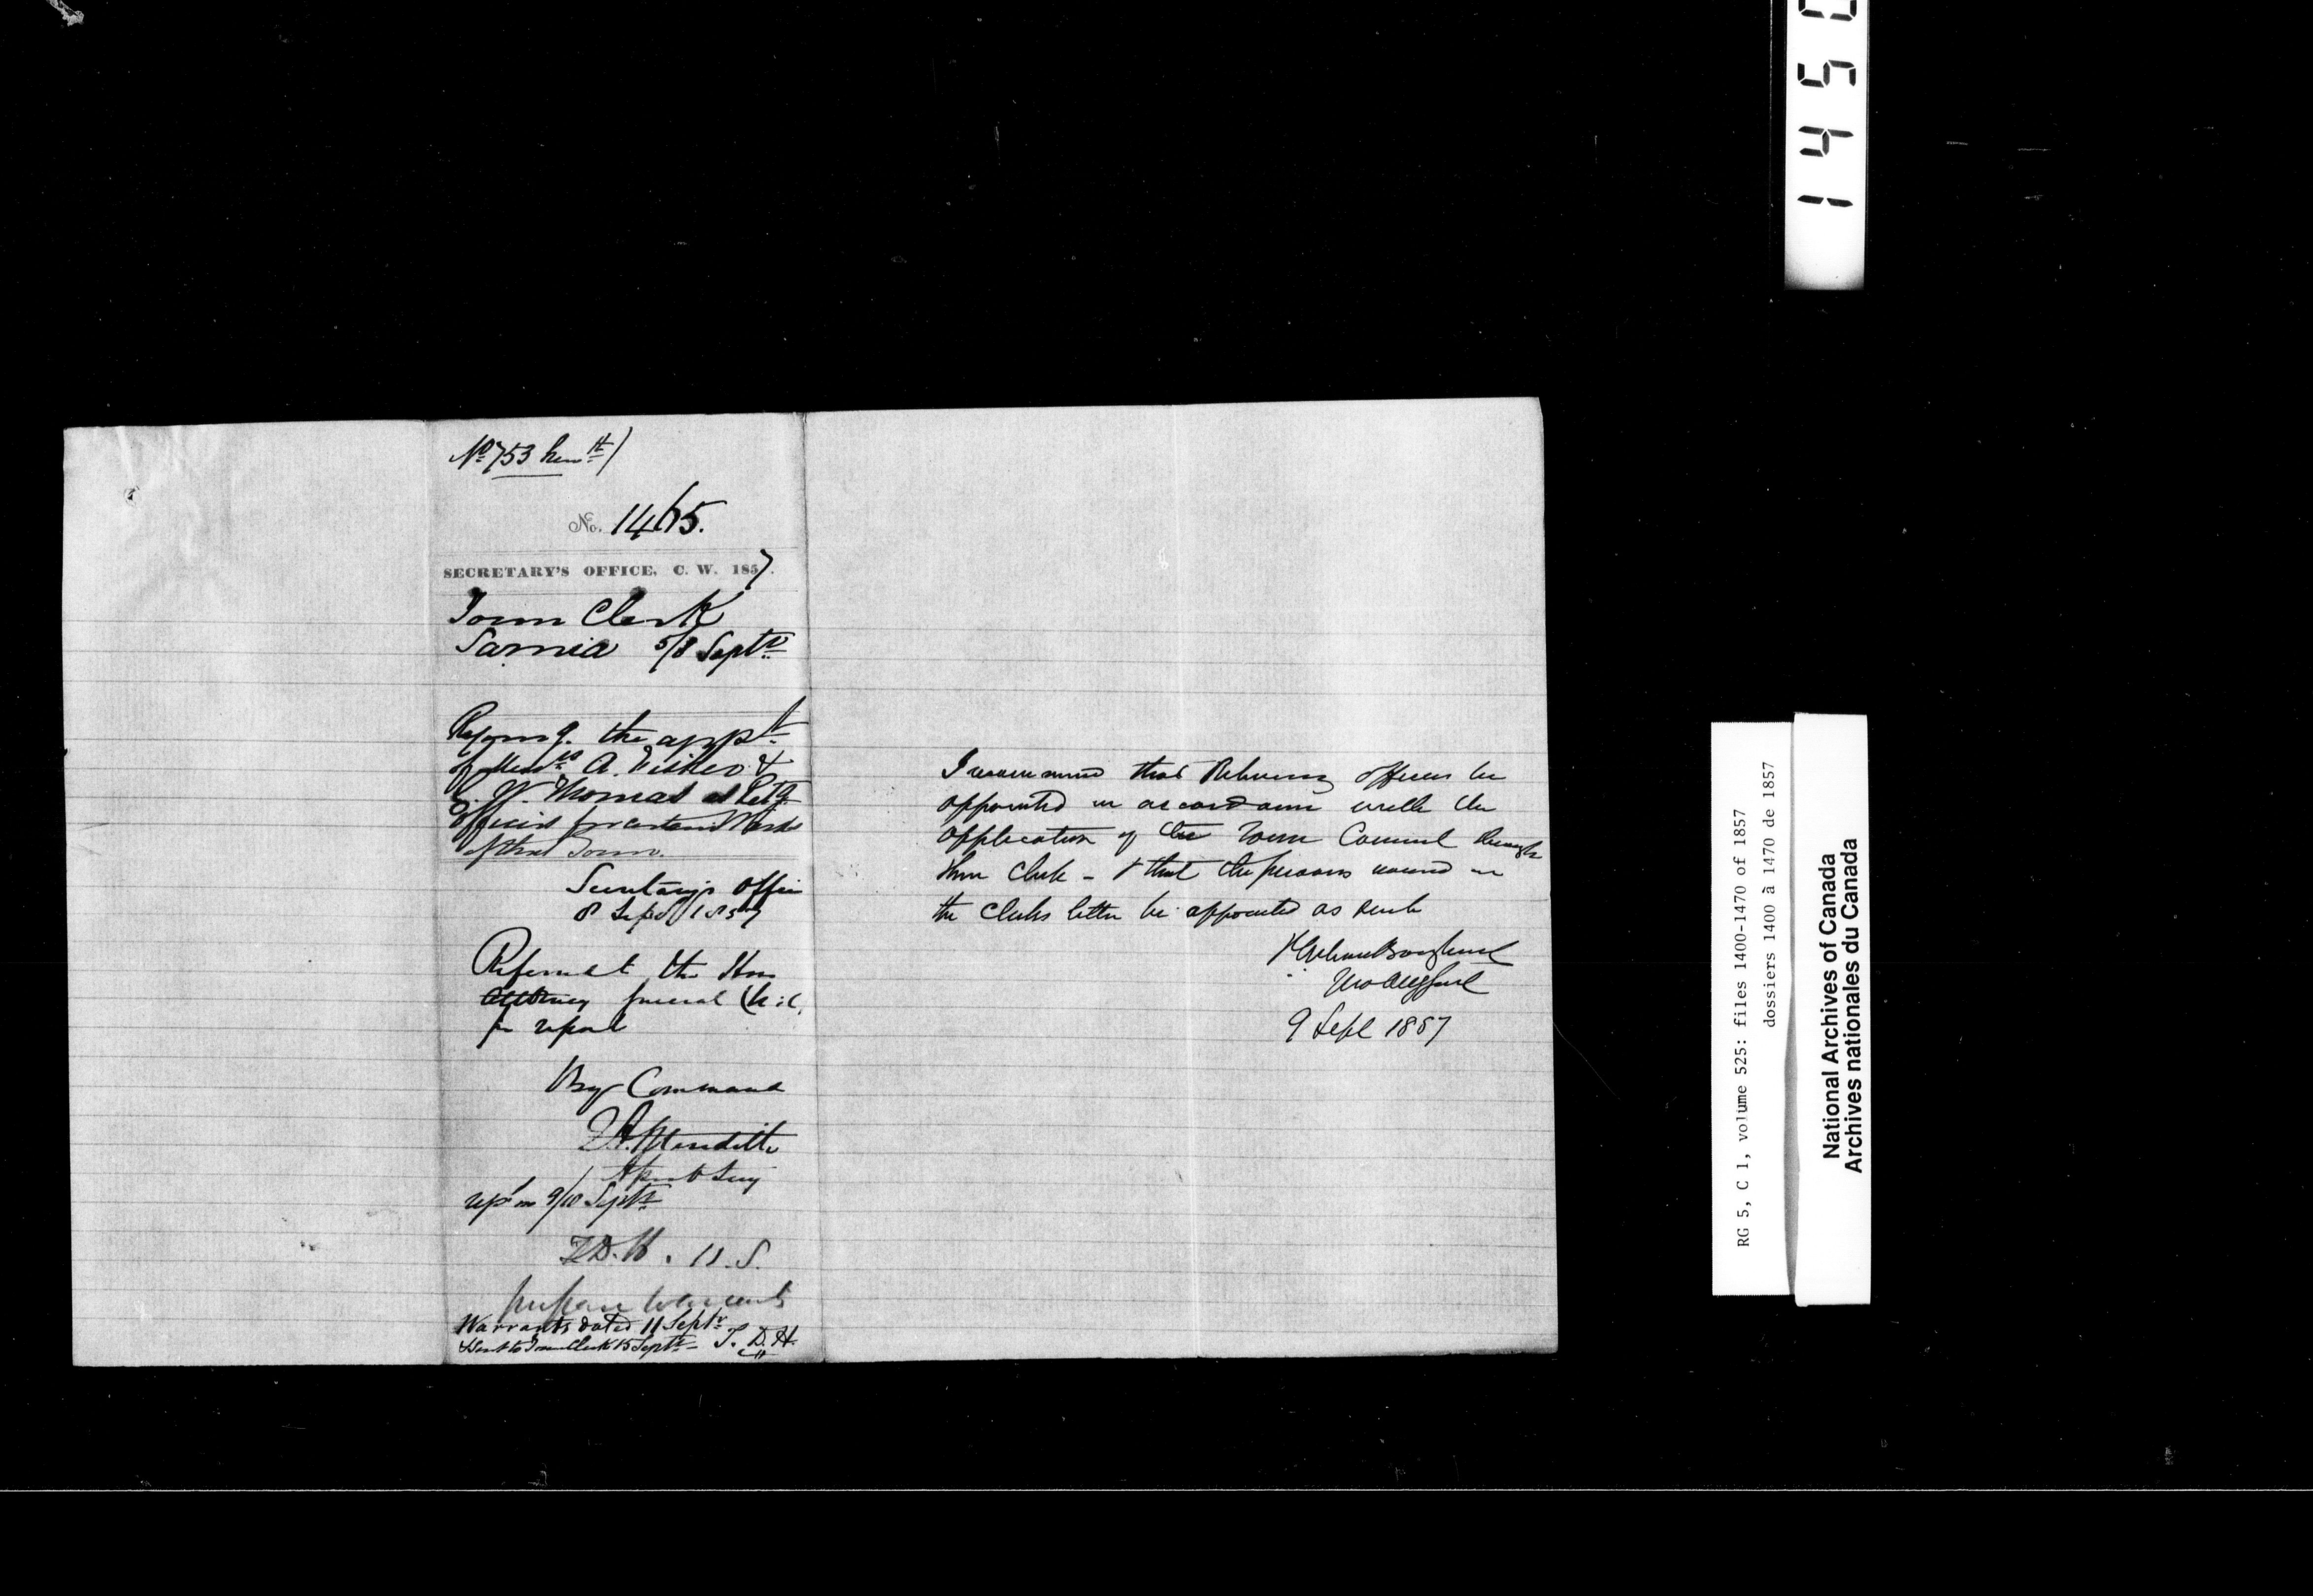 No 753
No. 1465.
SECRETARY'S OFFICE, C. W. 1857.
Town Clerk
Sarnia 5/8 Septr
the appt
of Messrs A. Fisher &
W. Thomas as Retg
Officers for certain Wards
of that Town.
Secretary's Office
8 Sept 1857
Referred to the Hon
Attorney General
for report
By Command
E. A. Meredith
Asst Secy
repd on 9/10 Septr
T. D. H.
prepare Warrants
Warrants dated 11 Septr
& sent to Town Clerk 15 Septr T. D. H.
I recommend that Returning officers be
appointed in accordance with the
application of the Town Council through
their Clerk - & that the persons named in
the Clerks letter be appointed as such
9 Sept 1857
1450
RG 5, C 1, volume 525: files 1400-1470 of 1857
dossiers 1400 à 1470 de 1857
National Archives of Canada
Archives nationales du Canada